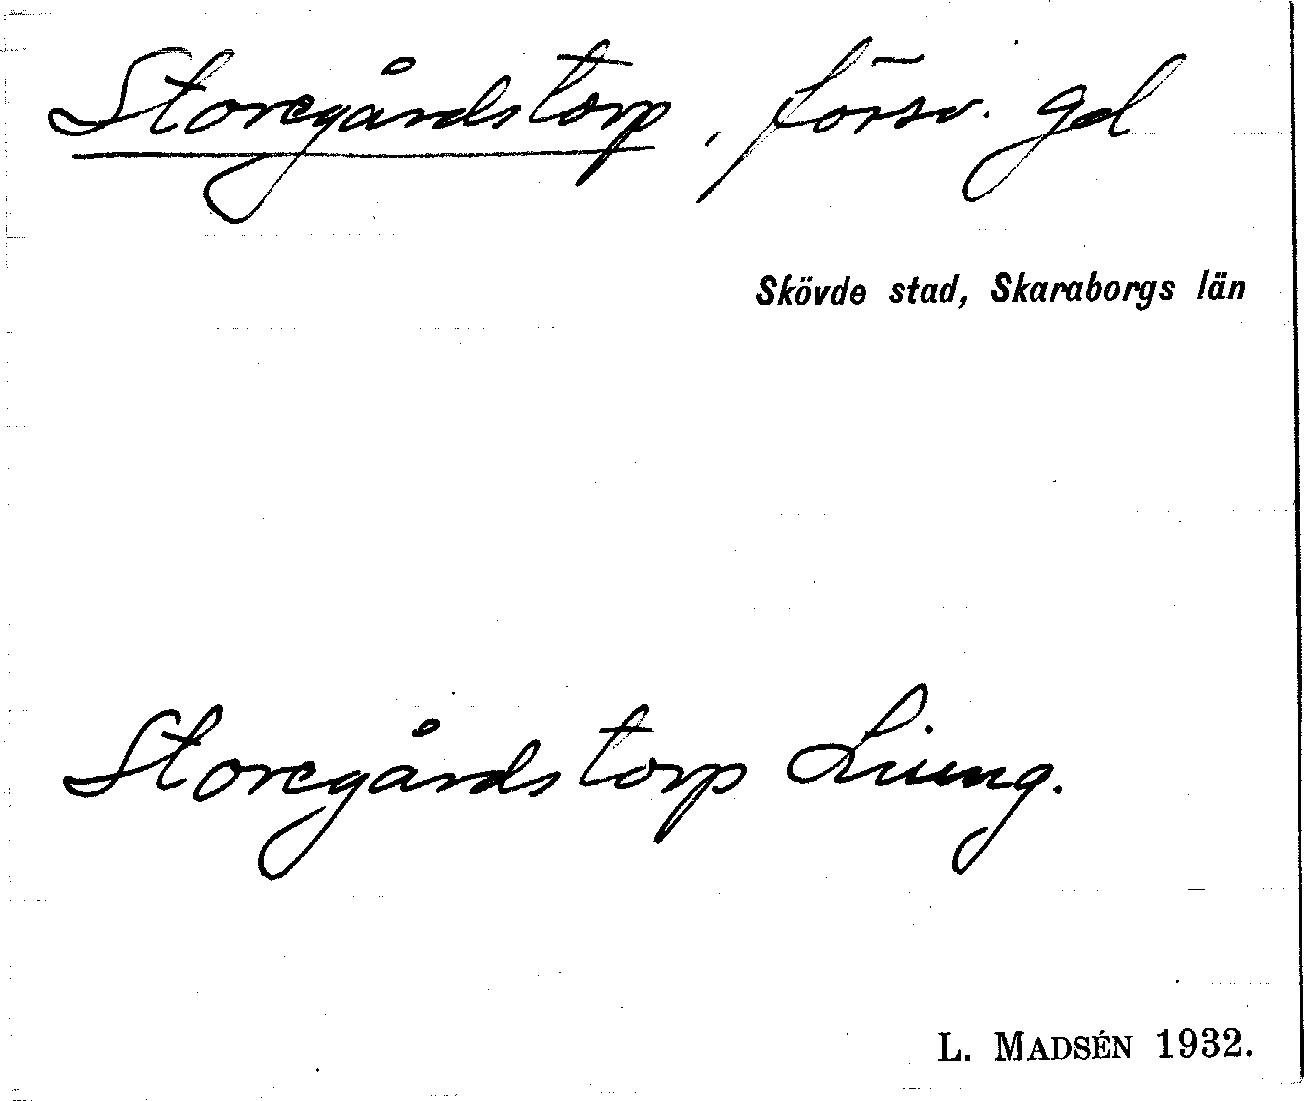 Storegårdstorp, försv. gd
Skövde stad, Skaraborgs län
Storegårdstorp
L. MADSÉN 1932.